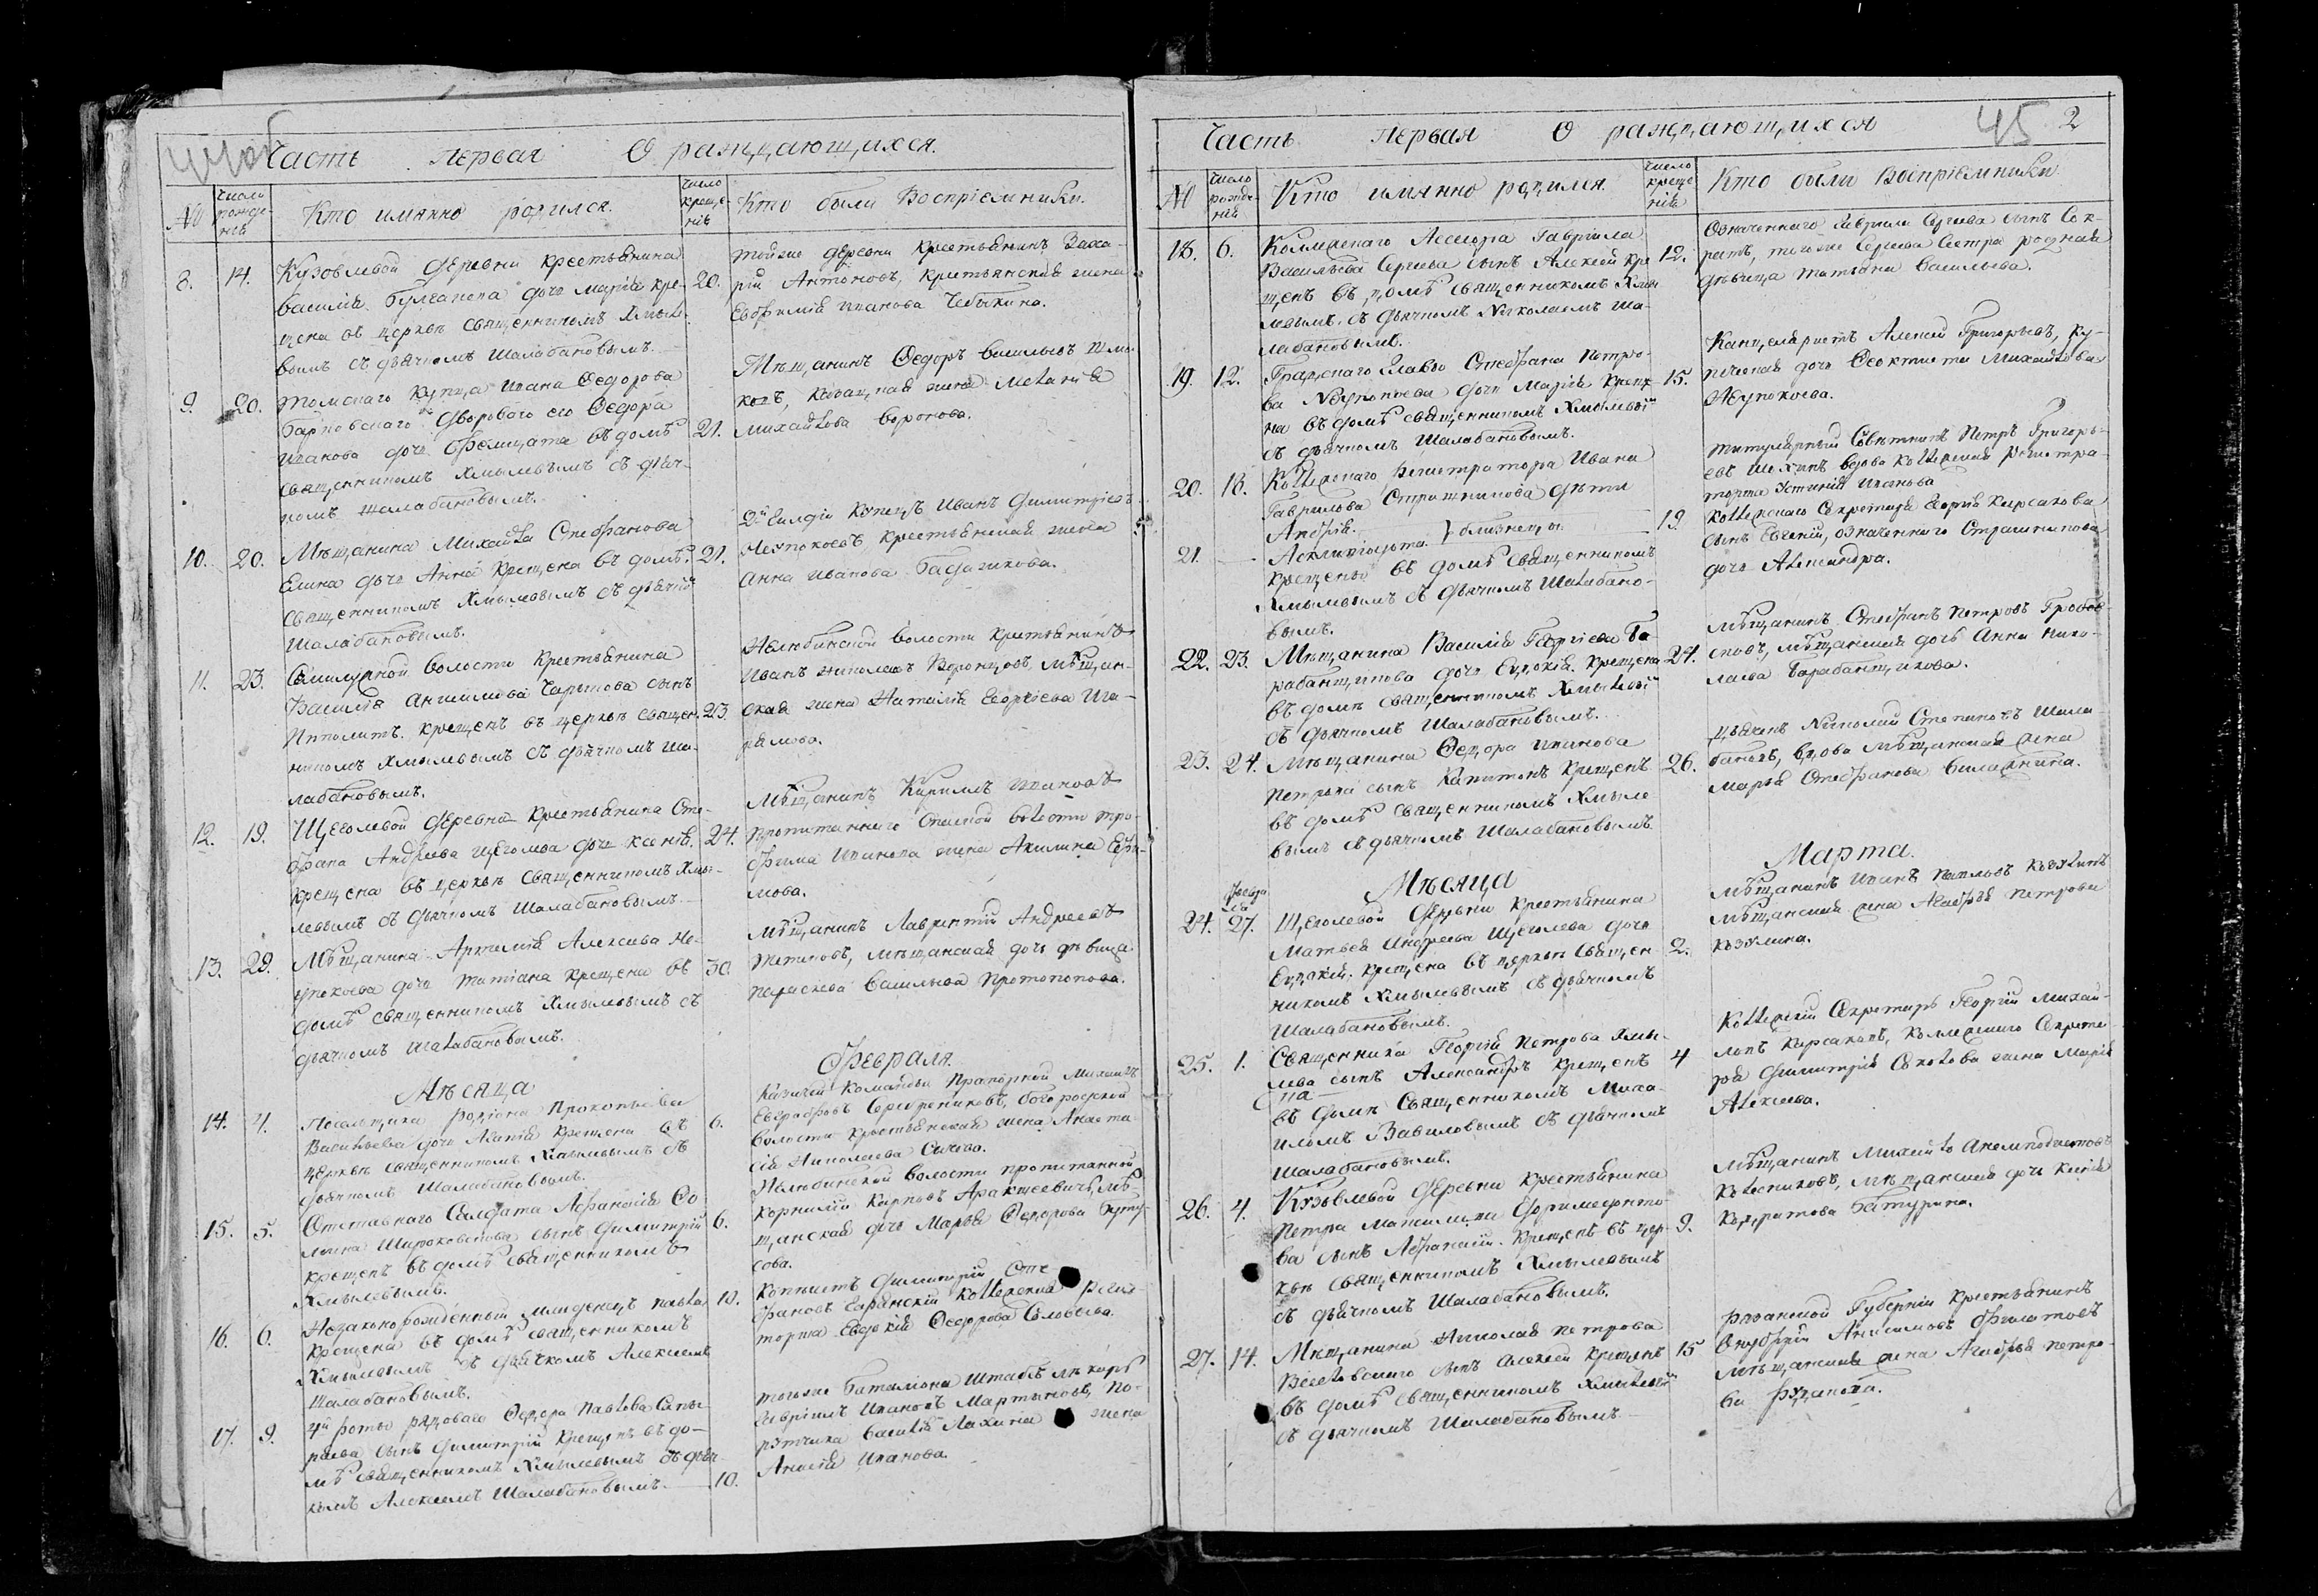 Часть первая О раждающихся.
№
число рожде-
нія
Кто имянно родился.
число
креще-
нія
Кто были Воспріемники.
8. 14. Кузовлевой деревни крестьянина
Василія дочь Марія кре-
щена въ церкви священникомъ Хмыле-
вымъ съ дьячкомъ Шалабановымъ.
20. тойже деревни крестьянинъ Заха-
рій Антоновъ, крестьянская жена
Евфимія Иванова Чебыкина.
9. 20. Томскаго купца Ивана Федорова
двороваго его Федора
Иванова дочь Фелицата въ домѣ
священникомъ Хмылевымъ съ дьяч-
комъ Шалабановымъ.
21. Мѣщанинъ Федоръ Васильевъ
жена Меланія
Михайлова Воронова.
10. 20. Мѣщанина Михайла Стефанова
Елина дочь Анна крещена въ домѣ
священникомъ Хмылевымъ съ дьячкомъ
Шалабановымъ.
21. 2й гилдіи купецъ Иванъ Димитріевъ
Неупокоевъ, крестьянская жена
Анна Иванова
11. 23. волости крестьянина
Василія сынъ
Ипполитъ крещенъ въ церкви священ-
никомъ Хмылевымъ съ дьячкомъ Ша-
лабановымъ.
23. Нелюбинской волости крестьянинъ
Иванъ Николаевъ Воронцовъ, мѣщан-
ская жена Наталія Георгіева
12. 19. Щеголевой деревни крестьянина Сте-
фана Андреева Щеголева дочь Ксенія
крещена въ церкви священникомъ Хмы-
левымъ съ дьячкомъ Шалабановымъ.
24. Мѣщанинъ Кирилъ Ивановъ
Спасской волости Тро-
фима Иванова жена Акилина
13. 29. Мѣщанина Артемія Алексѣева Не-
упокоева дочь Татіана крещена въ
домѣ священникомъ Хмылевымъ съ
дьячкомъ Шалабановымъ.
30. Мѣщанинъ Лаврентій Андреевъ
мѣщанская дочь дѣвица
Параскева Васильева Протопопова.
Мѣсяца Февраля.
14. 4. Родіона Прокопьева
Васильева дочь Агапія крещена въ
церкви священникомъ Хмылевымъ съ
дьячкомъ Шалабановымъ.
6. Казачей команды Михаилъ
Евграфовъ Серебрениковъ, Богородской
волости крестьянская жена Анаста-
сія Николаева Сычева.
15. 5. Отставнаго Солдата Афанасія
сынъ Димитрій
крещенъ въ домѣ священникомъ
Хмылевымъ.
6. Нелюбинской волости пропитанной
Корнилій Карповъ мѣ-
щанская дочь Марья Федорова
сова.
16. 6. Незаконорожденный младенецъ Павла
крещена въ домѣ священникомъ
Хмылевымъ съ дьячкомъ Алексеемъ
Шалабановымъ.
10. Копіистъ Димитрій Сте-
фановъ Коллежская Регис-
торша Евдокія Федорова Соловьева.
17. 9. 4й роты рядоваго Федора Павлова
сынъ Димитрій крещенъ въ до-
мѣ священникомъ Хмылевымъ съ дьяч-
комъ Алексеемъ Шалабановымъ.
10. тогоже Баталіона Штабъ лѣкарь
Гавріилъ Ивановъ Мартыновъ, По-
ручика Василія Лахина жена
Анисія Иванова.
Часть первая О раждающихся 45 2
№
число
рожде-
нія
Кто имянно родился.
число
креще-
нія
Кто были Воспріемники
18. 6. Коллежскаго Асессора Гавріила
Васильева Сергѣева сынъ Алексѣй кре-
щенъ въ домѣ священникомъ Хмы-
левымъ съ дьячкомъ Николаемъ Ша-
лабановымъ.
12. Означеннаго Гавріила Сергѣева сынъ Сок-
ратъ, тогоже Сергѣева сестра родная
дѣвица Татьяна Васильева.
19. 12. Градскаго Главы Стефана Петро-
ва Неупокоева дочь Марія креще-
на въ домѣ священникомъ Хмылевымъ
съ дьячкомъ Шалабановымъ.
15. Канцеляристъ Алексей Григорьевъ, ку-
печеская дочь Феоктиста Михайлова
Неупокоева.
20. 18. Коллежскаго Регистратора Ивана
Гаврилова Страшникова дѣти
Андрей.
21. Асклипіодота. } близнецы
крещены въ домѣ священникомъ
Хмылевымъ съ дьячкомъ Шалабано-
вымъ.
19. Титулярный Совѣтникъ Петръ Григорь-
евъ вдова Коллежская Регистра-
торша Устинія Иванова
Коллежскаго Секретаря Георгія Кирсанова
сынъ Евгеній, означеннаго Страшникова
дочь Александра.
22. 23. Мѣщанина Василія Георгіева Ба-
рабанщикова дочь Евдокія крещена
въ домѣ священникомъ Хмылевымъ
съ дьячкомъ Шалабановымъ.
24. Мѣщанинъ Стефанъ Петровъ
мѣщанская дочь Анна Нико-
лаева Барабанщикова.
23. 24. Мѣщанина Федора Иванова
Петрова сынъ Капитонъ крещенъ
въ домѣ священникомъ Хмыле-
вымъ съ дьячкомъ Шалабановымъ
26. Дьяконъ Николай Степановъ Шала-
бановъ, вдова мѣщанская жена
Марья Стефанова
Мѣсяца Марта.
24. Февра-
ля 27. Щеголевой деревни крестьянина
Матвея Андреева Щеголева дочь
Евдокія крещена въ церкви священ-
никомъ Хмылевымъ съ дьячкомъ
Шалабановымъ.
2. Мѣщанинъ Иванъ Павловъ
мѣщанская жена Агафья Петрова
25. 1. Священника Георгія Петрова Хмы-
лева сынъ Александръ крещенъ
въ домѣ Священникомъ Миха-
иломъ Вавиловымъ съ дьячкомъ
Шалабановымъ.
4 Коллежскій Секретарь Георгій Михай-
ловъ Кирсановъ, Коллежскаго Секрета-
ря Димитрія Соколова жена Марія
Алексеева.
26. 4. Кузовлевой деревни крестьянина
Петра
сынъ Афанасій крещенъ въ цер-
кви священникомъ Хмылевымъ
съ дьячкомъ Шалабановымъ.
9. Мѣщанинъ Михайло
Колесниковъ, мѣщанская дочь Ксенія
Кондратова Батурина.
27. 14. Мѣщанина Николая Петрова
сынъ Алексей крещенъ
въ домѣ священникомъ Хмылевымъ
съ дьячкомъ Шалабановымъ.
15 Рязанской Губерніи крестьянинъ
Онуфрій Анисимовъ Филатовъ
мѣщанская жена Агафья Петро-
ва